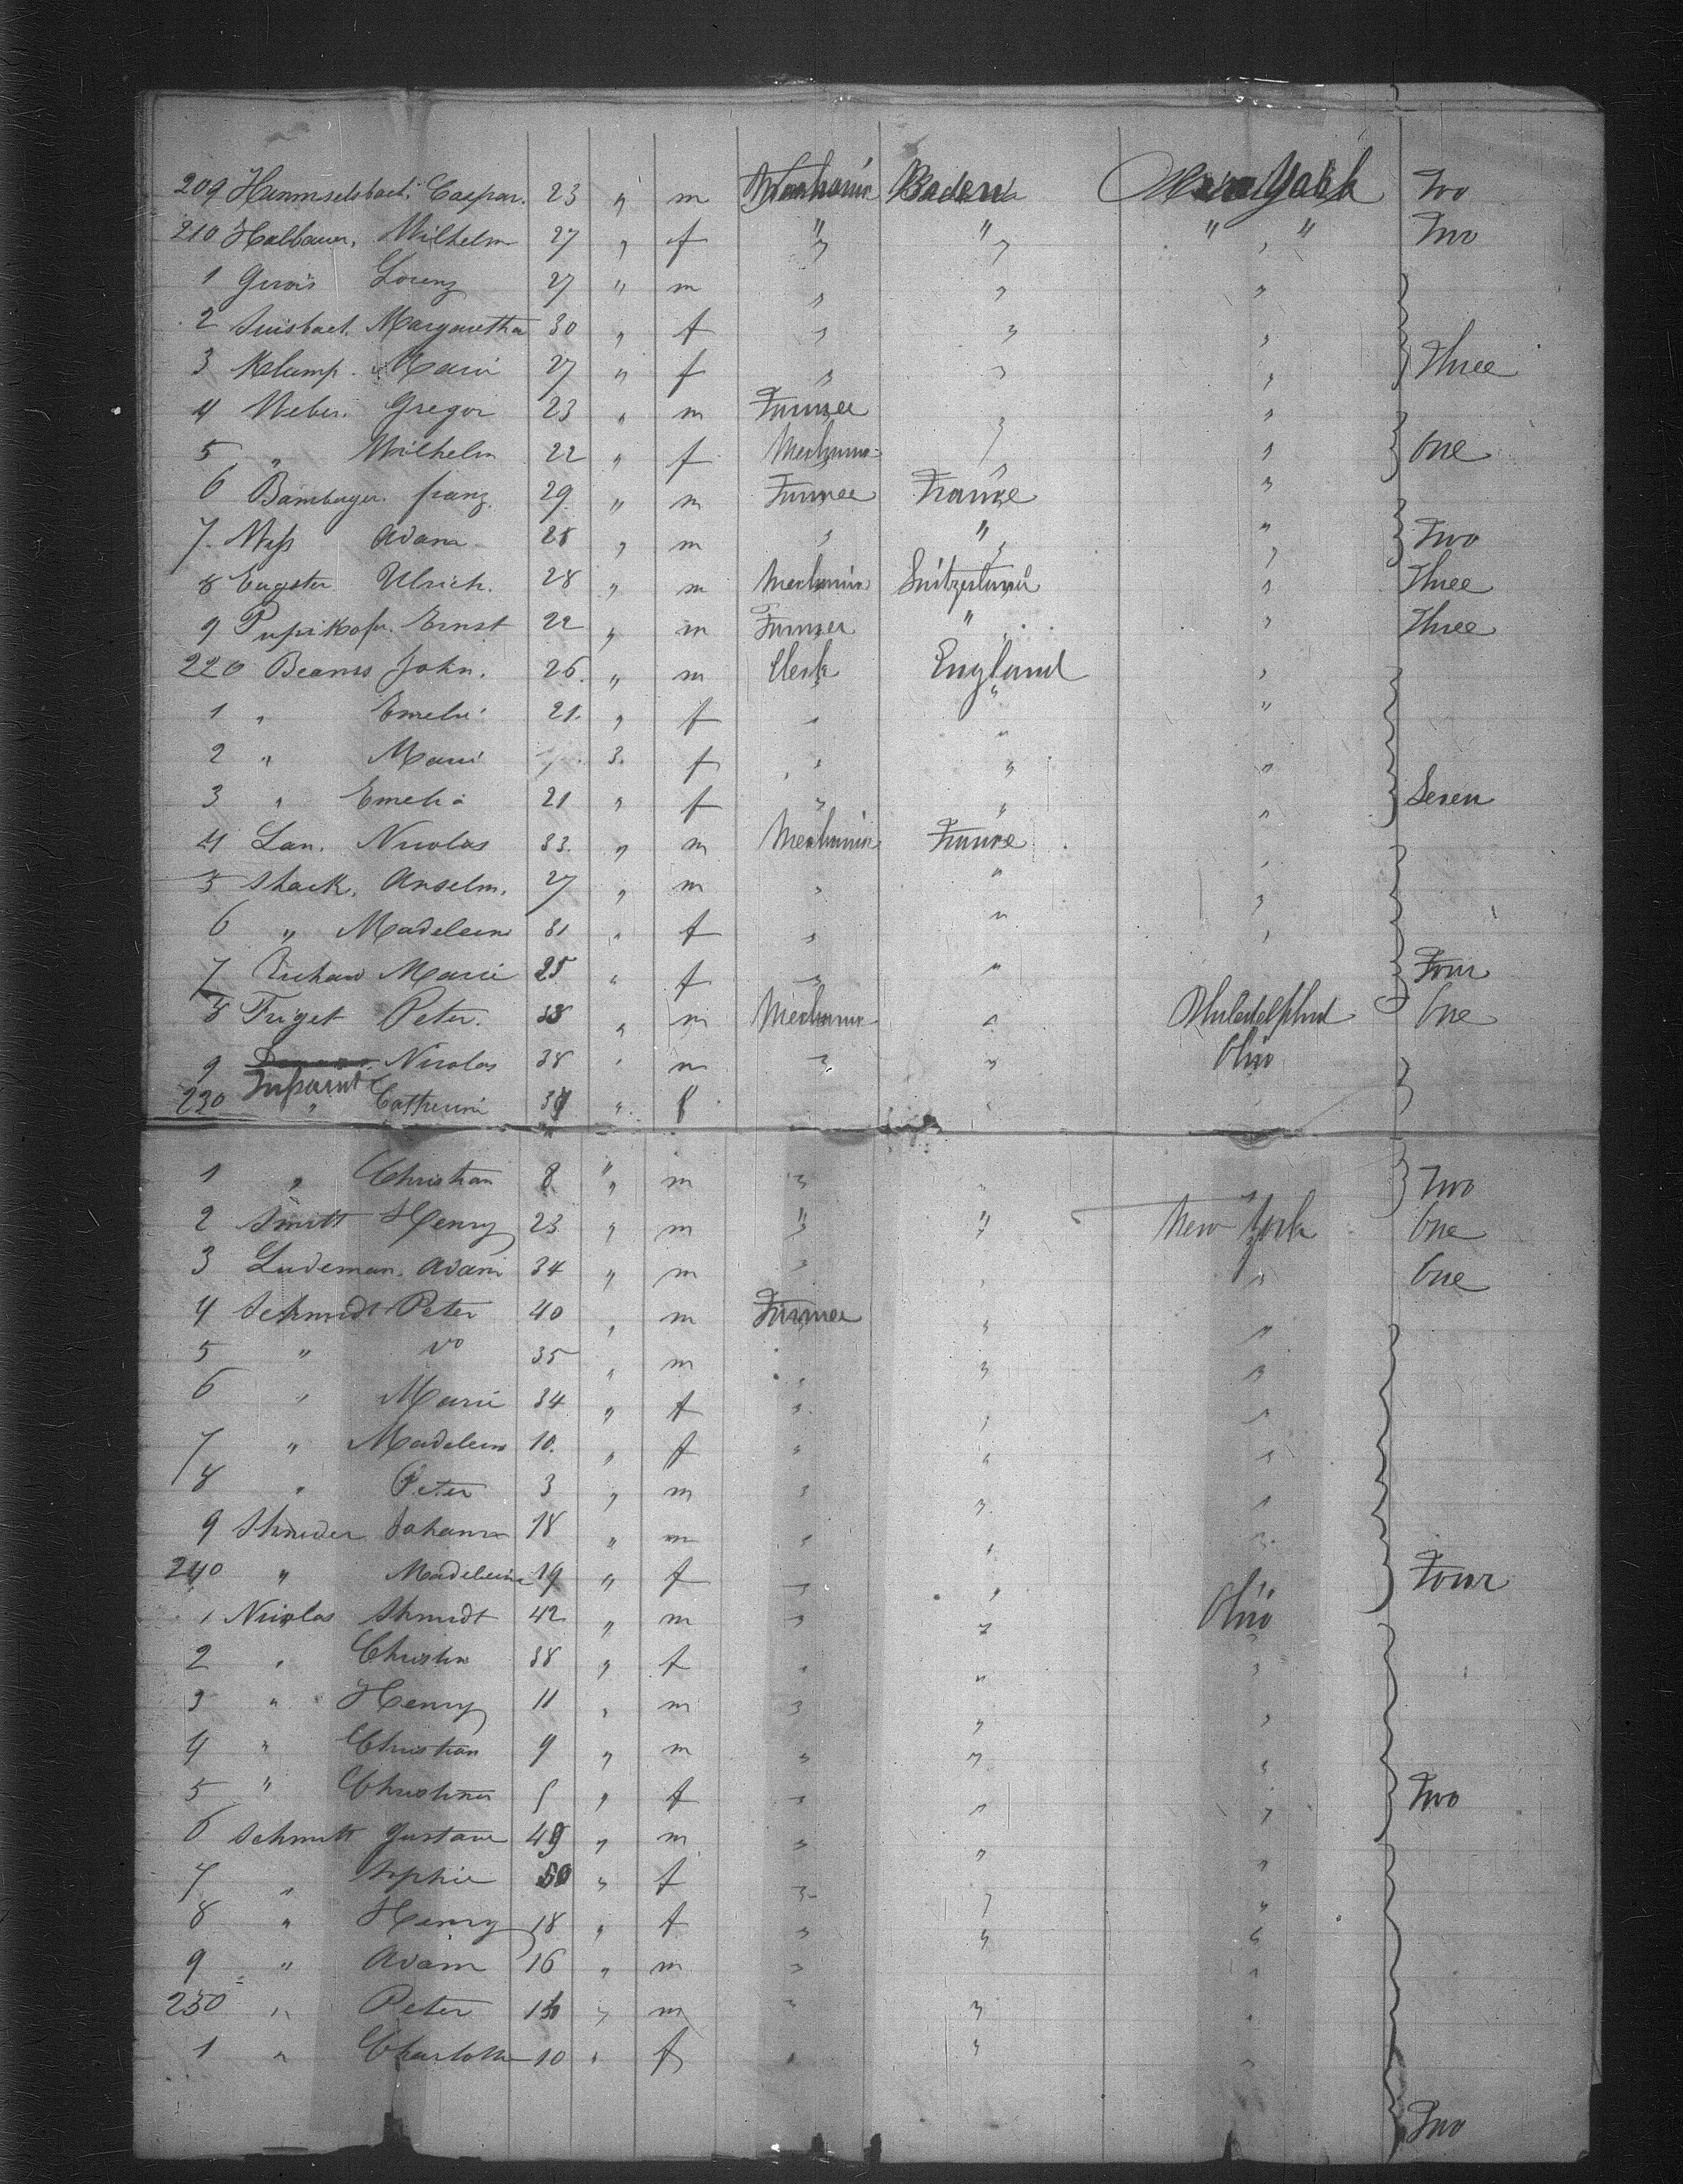 209 Hammselsbach. Caspar. 23 " m Mechanic Baden New York Two
210 Halbauer, Wilhelm 27 " f " " " " Two
1 Lorenz 27 " m " " "
2 Margaretha 30 " f " " "
3 Klump. Marie 27 " f " " " Three
4 Weber. Gregor 23 " m Farmer " "
5 " Wilhelm 22 " f Mechanic " " One
6 Bamberger. franz. 29 " m Farmer France "
7. Adam 28 " m " " " Two
8 Eugster Ulrich. 28 " m Mechanic Switzerland " Three
9 Pupikofer. Ernst 22 " m Farmer " " Three
220 Beams John. 26. " m Clerk England "
1 " Emelie 21. " f " " "
2 " Marie 3. f " " "
3 " Emelia 21 " f " " " Seven
4 Lan. Nicolas 33. " m Mechanic France "
5 Shack. Anselm. 27 " m " " "
6 " Madeleine 31 " f " " "
7 Marie 25 " f " " Four
8 Friget Peter. 38 " m Mechanic " Philadelphia One
9 Nicolas 38 " m " " Ohio
230 " Catherine " f
1 " Christian 8 " m " " " Two
2 Smitt Henry 23 " m " " New York One
3 Ludeman. Adam 34 " m " " " One
4 Schmidt Peter 40 " m Farmer " "
5 " do 35 " m " " "
6 " Marie 34 " f " " "
7 " Madeleine 10. " f " " "
8 " Peter 3 " m " " "
9 Shneider Johann 18 " m " " "
240 " Madeleine 19 " f " " " Four
1 Nicolas Shmidt 42 " m " " Ohio
2 " Christin 38 " f " " "
3 " Henry 11 " m " " "
4 " Christian 9 " m " " "
5 " Christina " f " " " Two
6 Schmitt Gustave 49 " m " " "
7 " Sophie 50 " f " " "
8 " Henry 18 " f " " "
9 " Adam 16 " m " " "
250 " Peter " m " " "
1 " Charlotte 10 " f " " "
Two